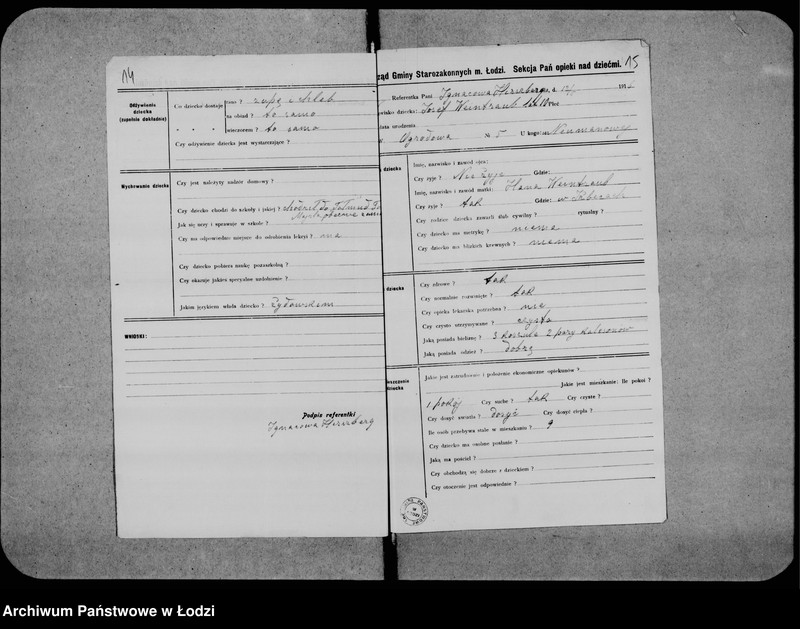 14
Odżywianie dziecka (zupełnie dokładnie)
Co dziecko dostaje rano ? zupę i chleb
na obiad ? to samo
" " " wieczorem ? to samo
Czy odżywienie dziecka jest wystarczające ?
Wychowanie dziecka
Czy jest należyty nadzór domowy ?
Czy dziecko chodzi do szkoły i jakiej ? chodził do
Jak się uczy i sprawuje w szkole ?
Czy ma odpowiednie miejsce do odrobienia lekcyi ?
Czy dziecko pobiera naukę pozaszkolną ?
Czy okazuje jakieś specyalne uzdolnienie ?
Jakim językiem włada dziecko ? żydowskim
WNIOSKI:
Podpis referentki
Ignacowa Hirszberg
15
ząd Gminy Starozakonnych m. Łodzi. Sekcja Pań opieki nad dziećmi.
Referentka Pani Ignacowa Hirszberg d. 191
wisko dziecka: Josef Weintraub
data urodzenia
Ogrodowa № 5 U kogo: Neumanowej
dziecka
Imię, nazwisko i zawód ojca:
Czy żyje ? Nie żyje Gdzie:
Imię, nazwisko i zawód matki: Hana Weintraub
Czy żyje ? tak Gdzie: w
Czy rodzice dziecka zawarli ślub cywilny ? rytualny ?
Czy dziecko ma metrykę ? niema
Czy dziecko ma bliskich krewnych ? niema
dziecka
Czy zdrowe ? tak
Czy normalnie rozwinięte ? tak
Czy opieka lekarska potrzebna ? nie
Czy czysto utrzymywane ? czysto
Jaką posiada bieliznę ? 3 koszule 2 pary kalesonów
Jaką posiada odzież ? dobrą
Jakie jest zatrudnienie i położenie ekonomiczne opiekunów ?
Jakie jest mieszkanie: Ile pokoi ?
1 pokój Czy suche ? tak Czy czyste ?
Czy dosyć światła ? dosyć Czy dosyć ciepła ?
Ile osób przebywa stale w mieszkaniu ? 9
Czy dziecko ma osobne posłanie ?
Jaką ma pościel ?
Czy obchodzą się dobrze z dzieckiem ?
Czy otoczenie jest odpowiednie ?
Archiwum Państwowe w Łodzi